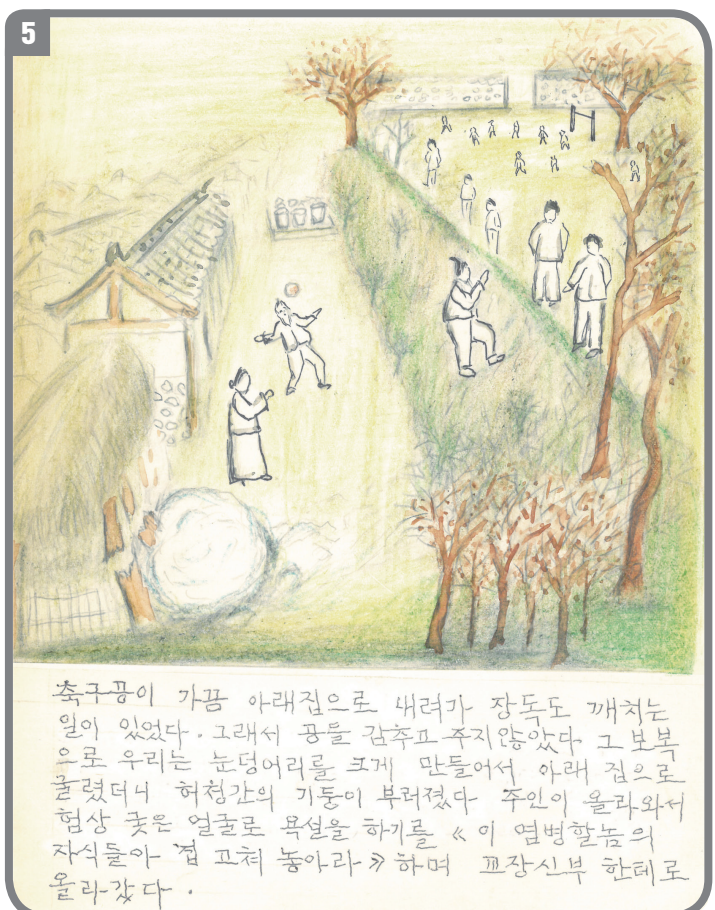 5
축구공이 가끔 아래집으로 내려가 장독도 깨치는
일이 있었다. 그래서 공을 감추고 주지않았다 그 보복
으로 우리는 눈덩어리를 크게 만들어서 아래 집으로
굴렸더니 허청간의 기둥이 부러졌다 주인이 올라와서
험상 궂은 얼굴로 욕설을 하기를 《 이 염병할놈의
자식들아 집 고쳐 놓아라 》 하며 교장신부 한테로
올라갔다.